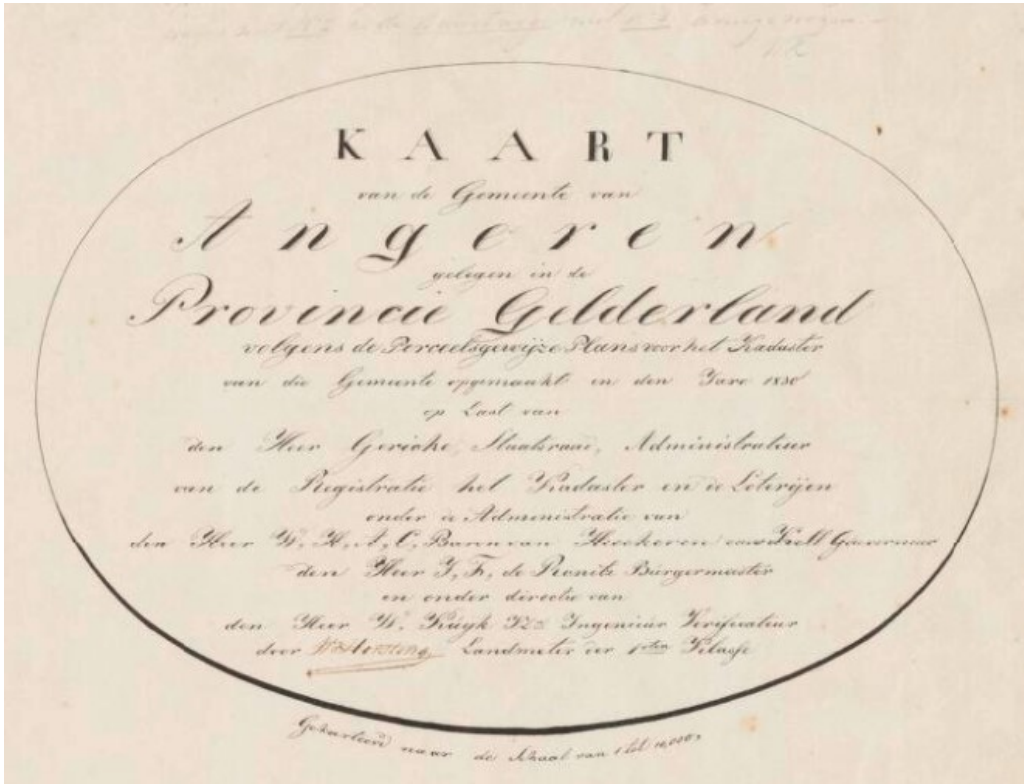 KAART
van de Gemeente van
Angeren
gelegen in de
Provincie Gelderland
volgens de Perceelsgewijze Plans voor het Kadaster
van die Gemeente opgemaakt in den Jare 1830
op Last van
den Heer Gericke, Staatsraad, Administrateur
van de Registratie het Kadaster en de Loterijen
onder de Administratie van
den Heer W, H, A, C, Baron van Heeckeren van Kell Gouverneur
den Heer J, F, de Pronitz Burgermeester
en onder directie van
den Heer W. Kuyk Ingenieur Verificateur
door Landmeter der 1ste Klasse
Gekarteerd naar de Schaal van 1 tot 10,000